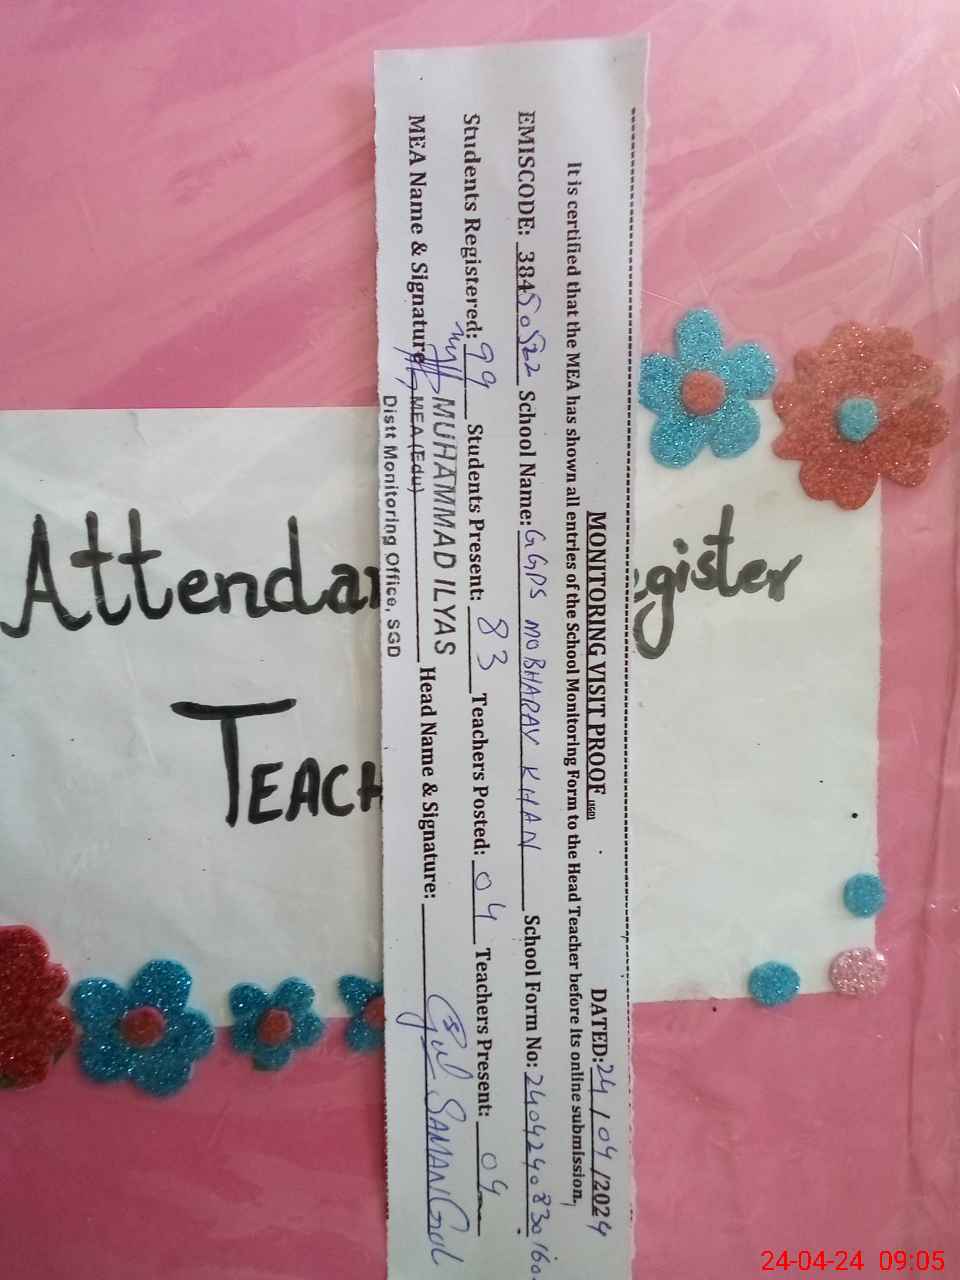 MONITORING VISIT PROOF (SGD) DATED: 24/04/2024
It is certified that the MEA has shown all entries of the School Monitoring Form to the Head Teacher before its online submission.
EMISCODE: 38450522 School Name: GGPS MOBHARAY KHAN School Form No: 2404240830160
Students Registered: 99 Students Present: 83 Teachers Posted: 04 Teachers Present: 04
MEA Name & Signature: MUHAMMAD ILYAS Head Name & Signature: Gul SAMAN Gul
MEA (Edu)
Distt Monitoring Office, SGD
Attendan egister
TEACH
24-04-24 09:05